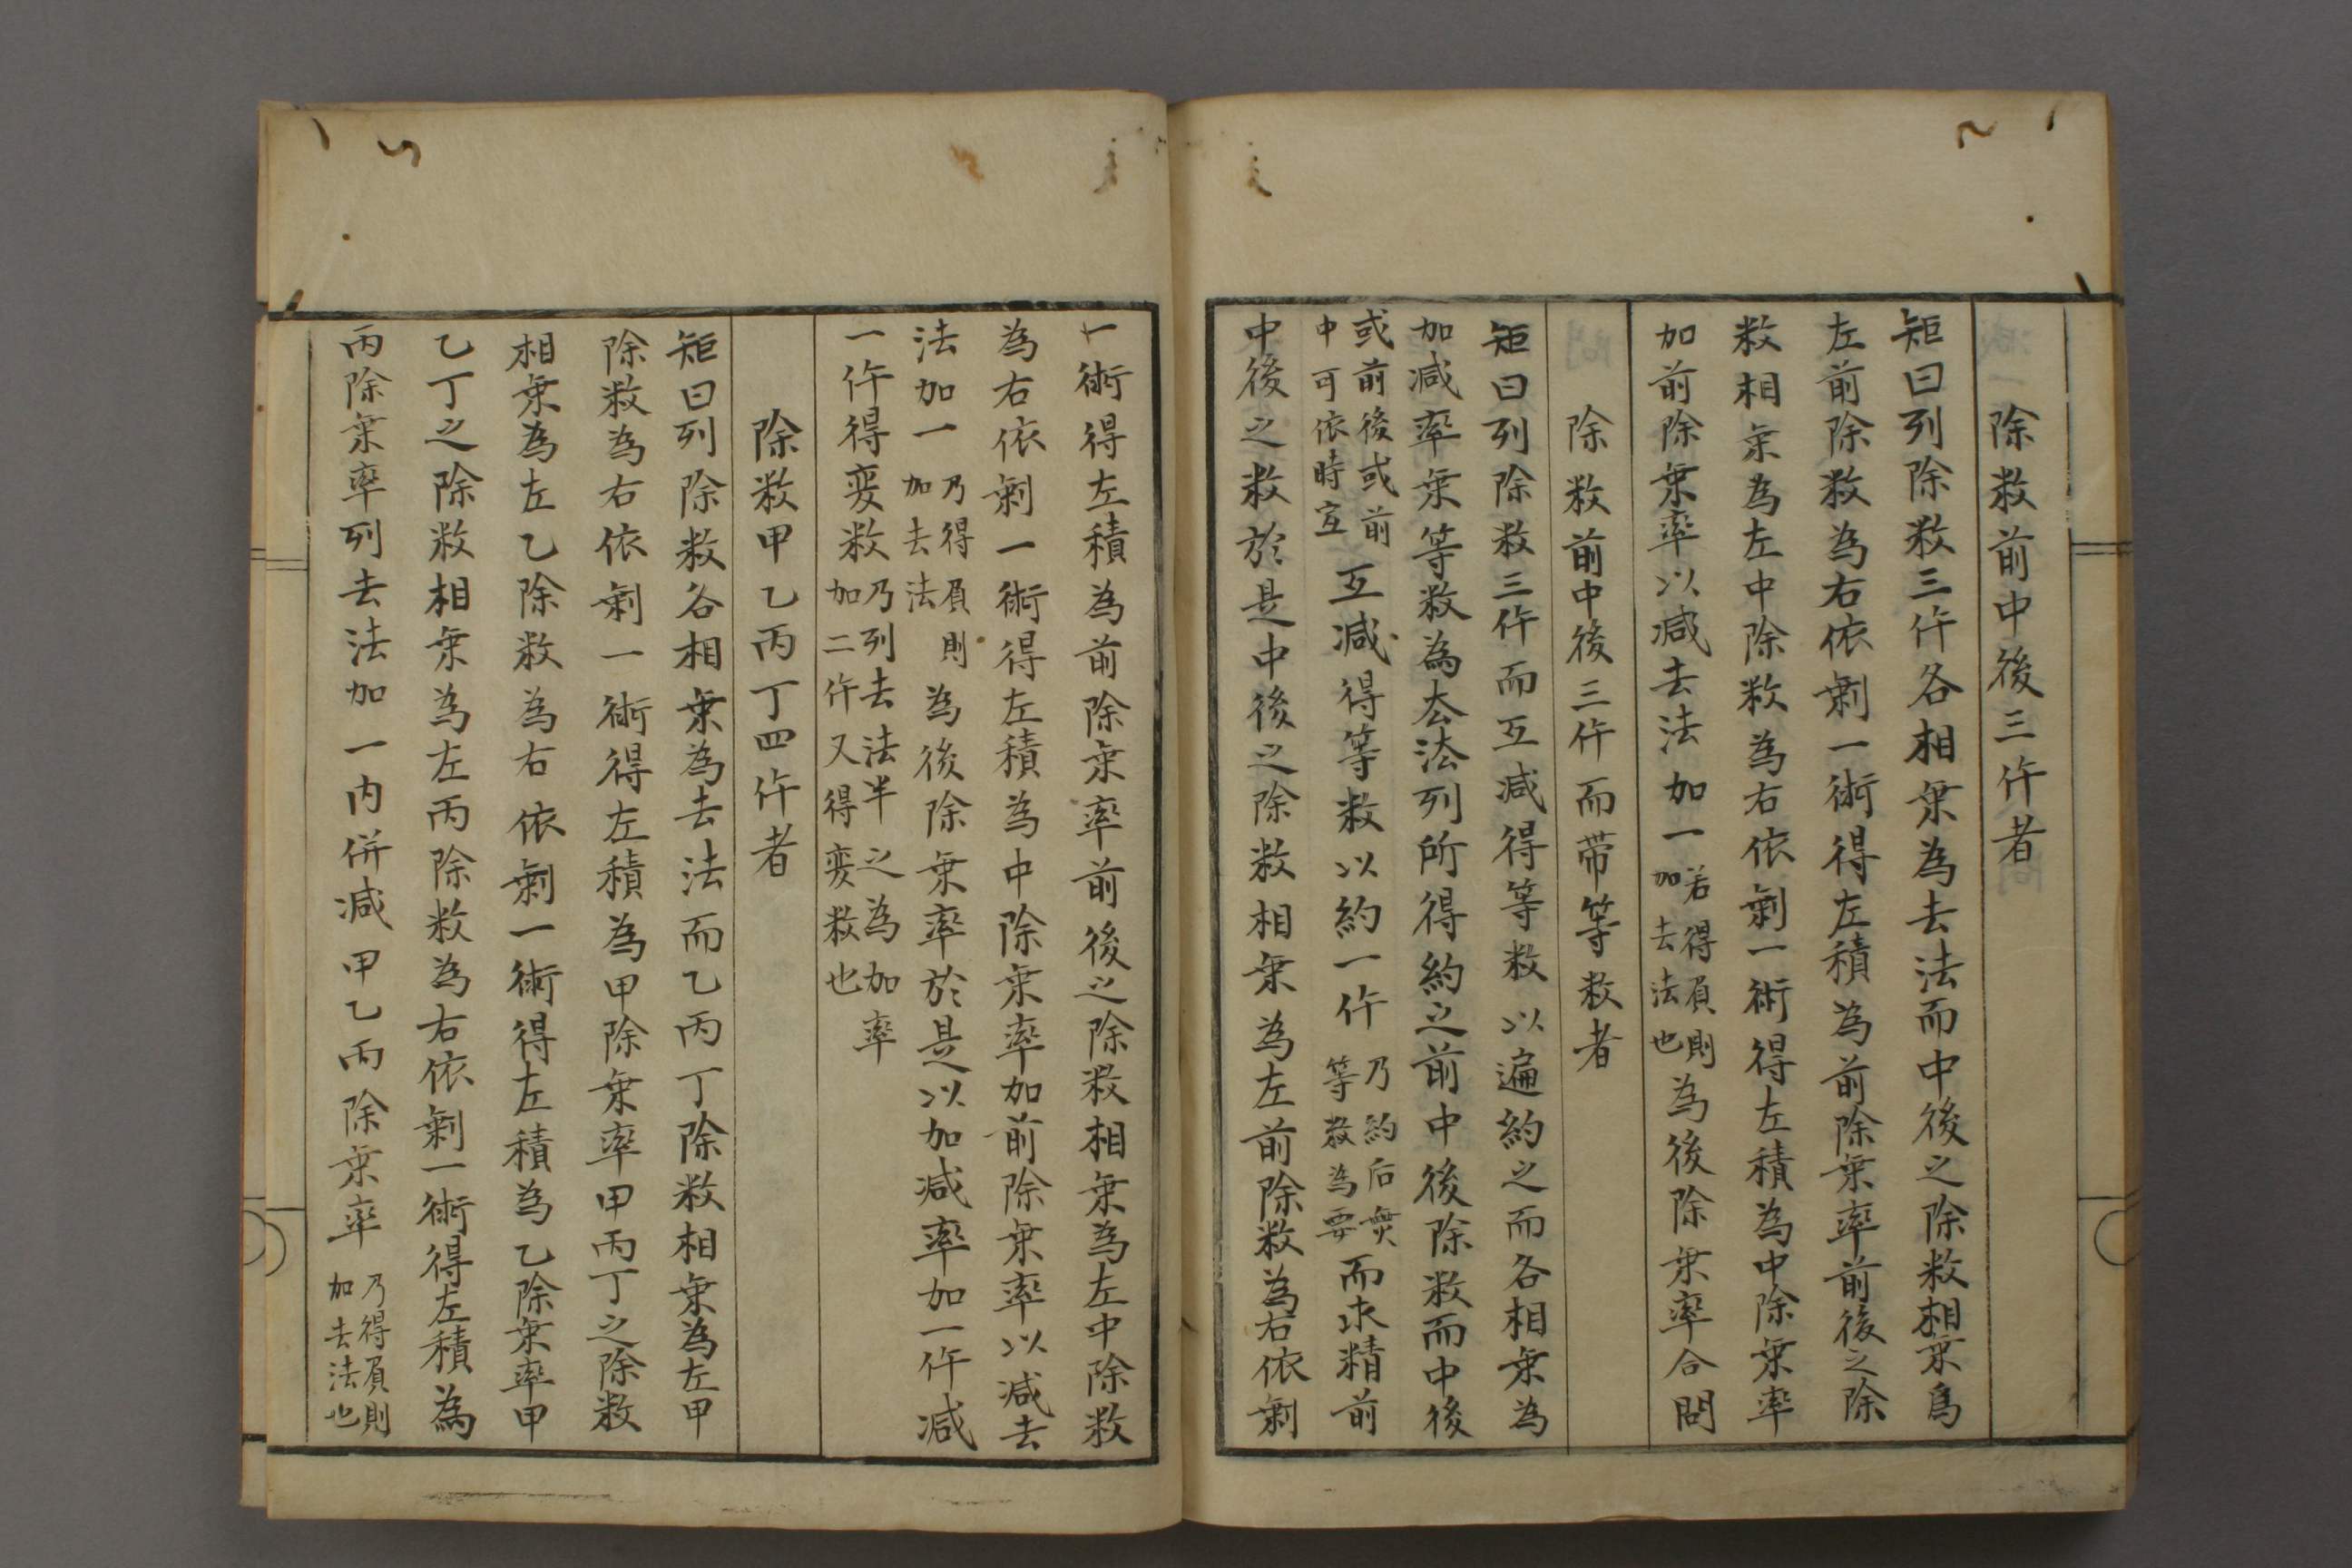 除数前中後三件者
矩曰列除数三件各相乗為去法而中後之除数相乗為
左前除数為右依剰一術得左積為前除乗率前後之除
数相乗為左中除数為右依剰一術得左積為中除乗率
加前除乗率以減去法加一若得負則加去法也為後除乗率合問
除数前中後三件而帯等数者
矩曰列除数三件而互減得等数以遍約之而各相乗為
加減率乗等数為去法列所得約之前中後除数而中後
或前後或前中可依時宜互減得等数以約一件乃約后無等数為要而求精前
中後之数於是中後之除数相乗為左前除数為右依剰
一術得左積為前除乗率前後之除数相乗為左中除数
為右依剰一術得左積為中除乗率加前除乗率以減去
法加一乃得負則加去法為後除乗率於是以加減率加一件減
一件得変数乃列去法半之為加率加二件又得変数也
除数甲乙丙丁四件者
矩曰列除数各相乗為去法而乙丙丁除数相乗為左甲
除数為右依剰一術得左積為甲除乗率甲丙丁之除数
相乗為左乙除数為右依剰一術得左積為乙除乗率甲
乙丁之除数相乗為左丙除数為右依剰一術得左積為
丙除乗率列去法加一内併減甲乙丙除乗率乃得負則加去法也